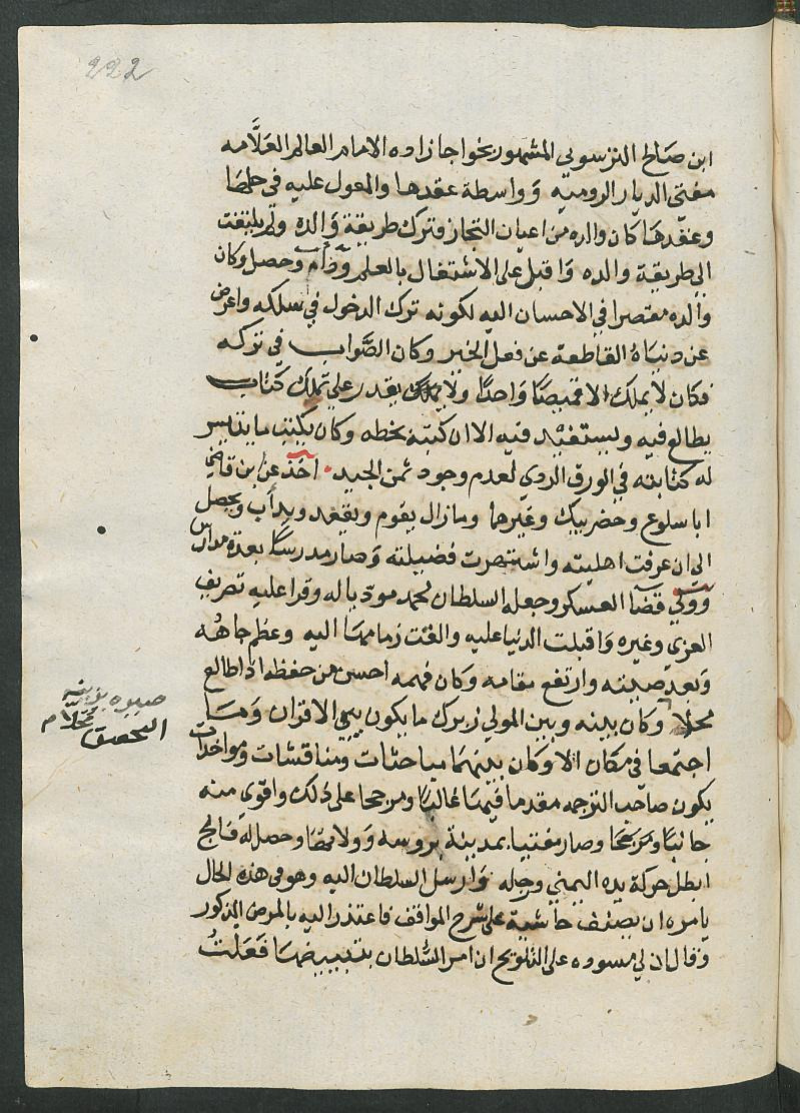 222
ابن صالح البرسوي المشهور بخواجا زاده الامام العالم العلامه
مفتى الديار الروميه وواسطة عقدها والمعول عليه في حلها
وعقدها كان والده من اعيان التجاز وترك طريقة والده ولم يلتفت
الى طريقة والده واقبل على الاشتغال بالعلم ودام وحصل وكان
والده مقتصرا في الاحسان اليه لكونه ترك الدخول في سلكه واعرض
عن دنياه القاطعة عن فعل الخير وكان الصواب في تركه
فكان لا يملك الا قميصا واحدا ولا يقدر على تملك كتاب
يطالع فيه ويستفيد فيه الا ان كتبه بخطه وكان يكتب ما يتيسر
له كتابته في الورق الردي لعدم وجود ثمن الجيد اخذ عن ابن قاضي
اياسلوغ وحضر بيك وغيرهما ومازال يقوم ويقعد ويداب ويحصل
الى ان عرفت اهليته واشتهرت فضيلته وصار مدرسا بعدة مدارس
وولي قضا العسكر وجعله السلطان محمد مودبا له وقرا عليه تصريف
العزي وغيره واقبلت الدنيا عليه والقت زمامها اليه وعظم جاهه
وبعد صيته وارتفع مقامه وكان فهمه احسن من حفظه اذا طالع
محلا وكان بينه وبين المولي زيرك ما يكون بين الاقران وما
اجتمعا في مكان الا وكان بينهما مباحثات ومناقشات ومواخذات
يكون صاحب الترجمه مقدما فيها غالبا ومرجحا على ذلك واقوي منه
جانبا وصار مفتيا بمدينة بروسه وولا قضا وحصل له فالج
ابطل حركة يده اليمني ورجله وارسل السلطان اليه وهو في هذه الحال
يامره ان يصنف حاشية على شرح المواقف فاعتذر اليه بالمرض المذكور
وقال ان لي مسوده على التلويح ان امر السلطان بتبييضها فعلت